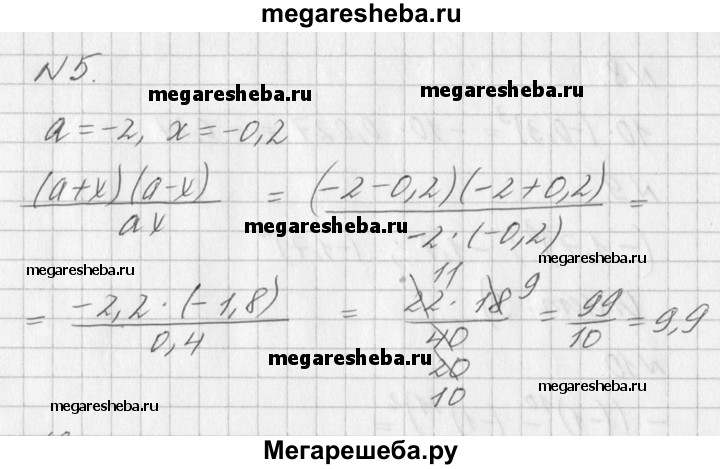 megaresheba.ru
N 5.
megaresheba.ru
a = -2, x = -0,2
megaresheba.ru
(a+x)(a-x) / ax = (-2-0,2)(-2+0,2) / -2·(-0,2) =
megaresheba.ru
megaresheba.ru megaresheba.ru
= -2,2·(-1,8) / 0,4 = 22·18 / 40 = 99/10 = 9,9
11 9
20
10
megaresheba.ru
megaresheba.ru
megaresheba.ru
Мегарешеба.ру